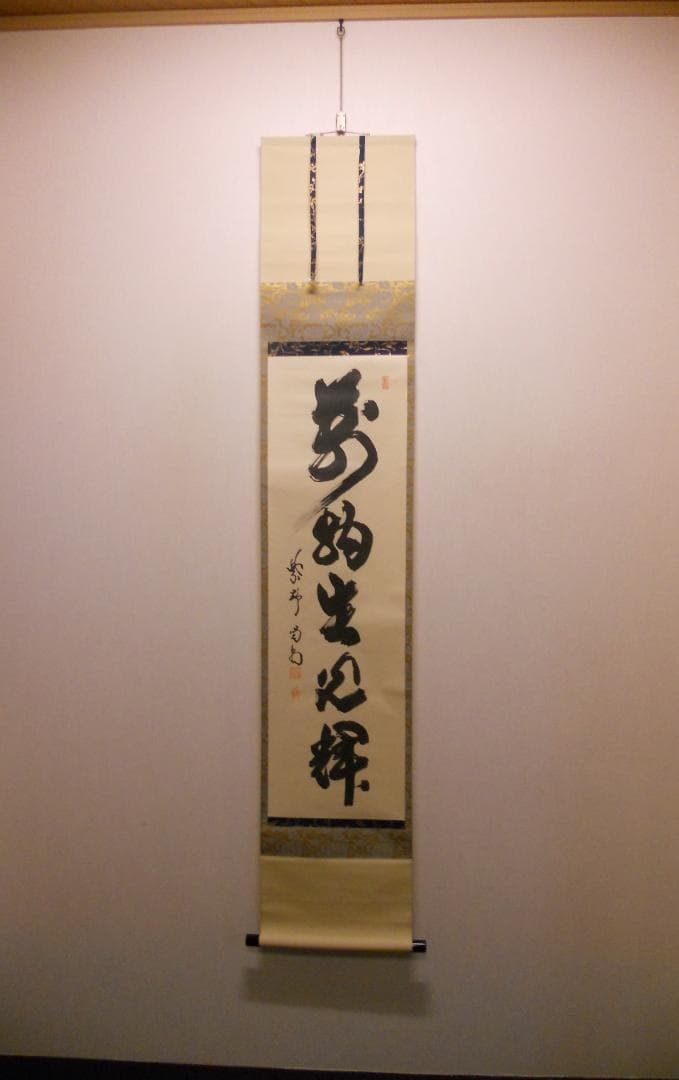 萬物生光輝
紫野